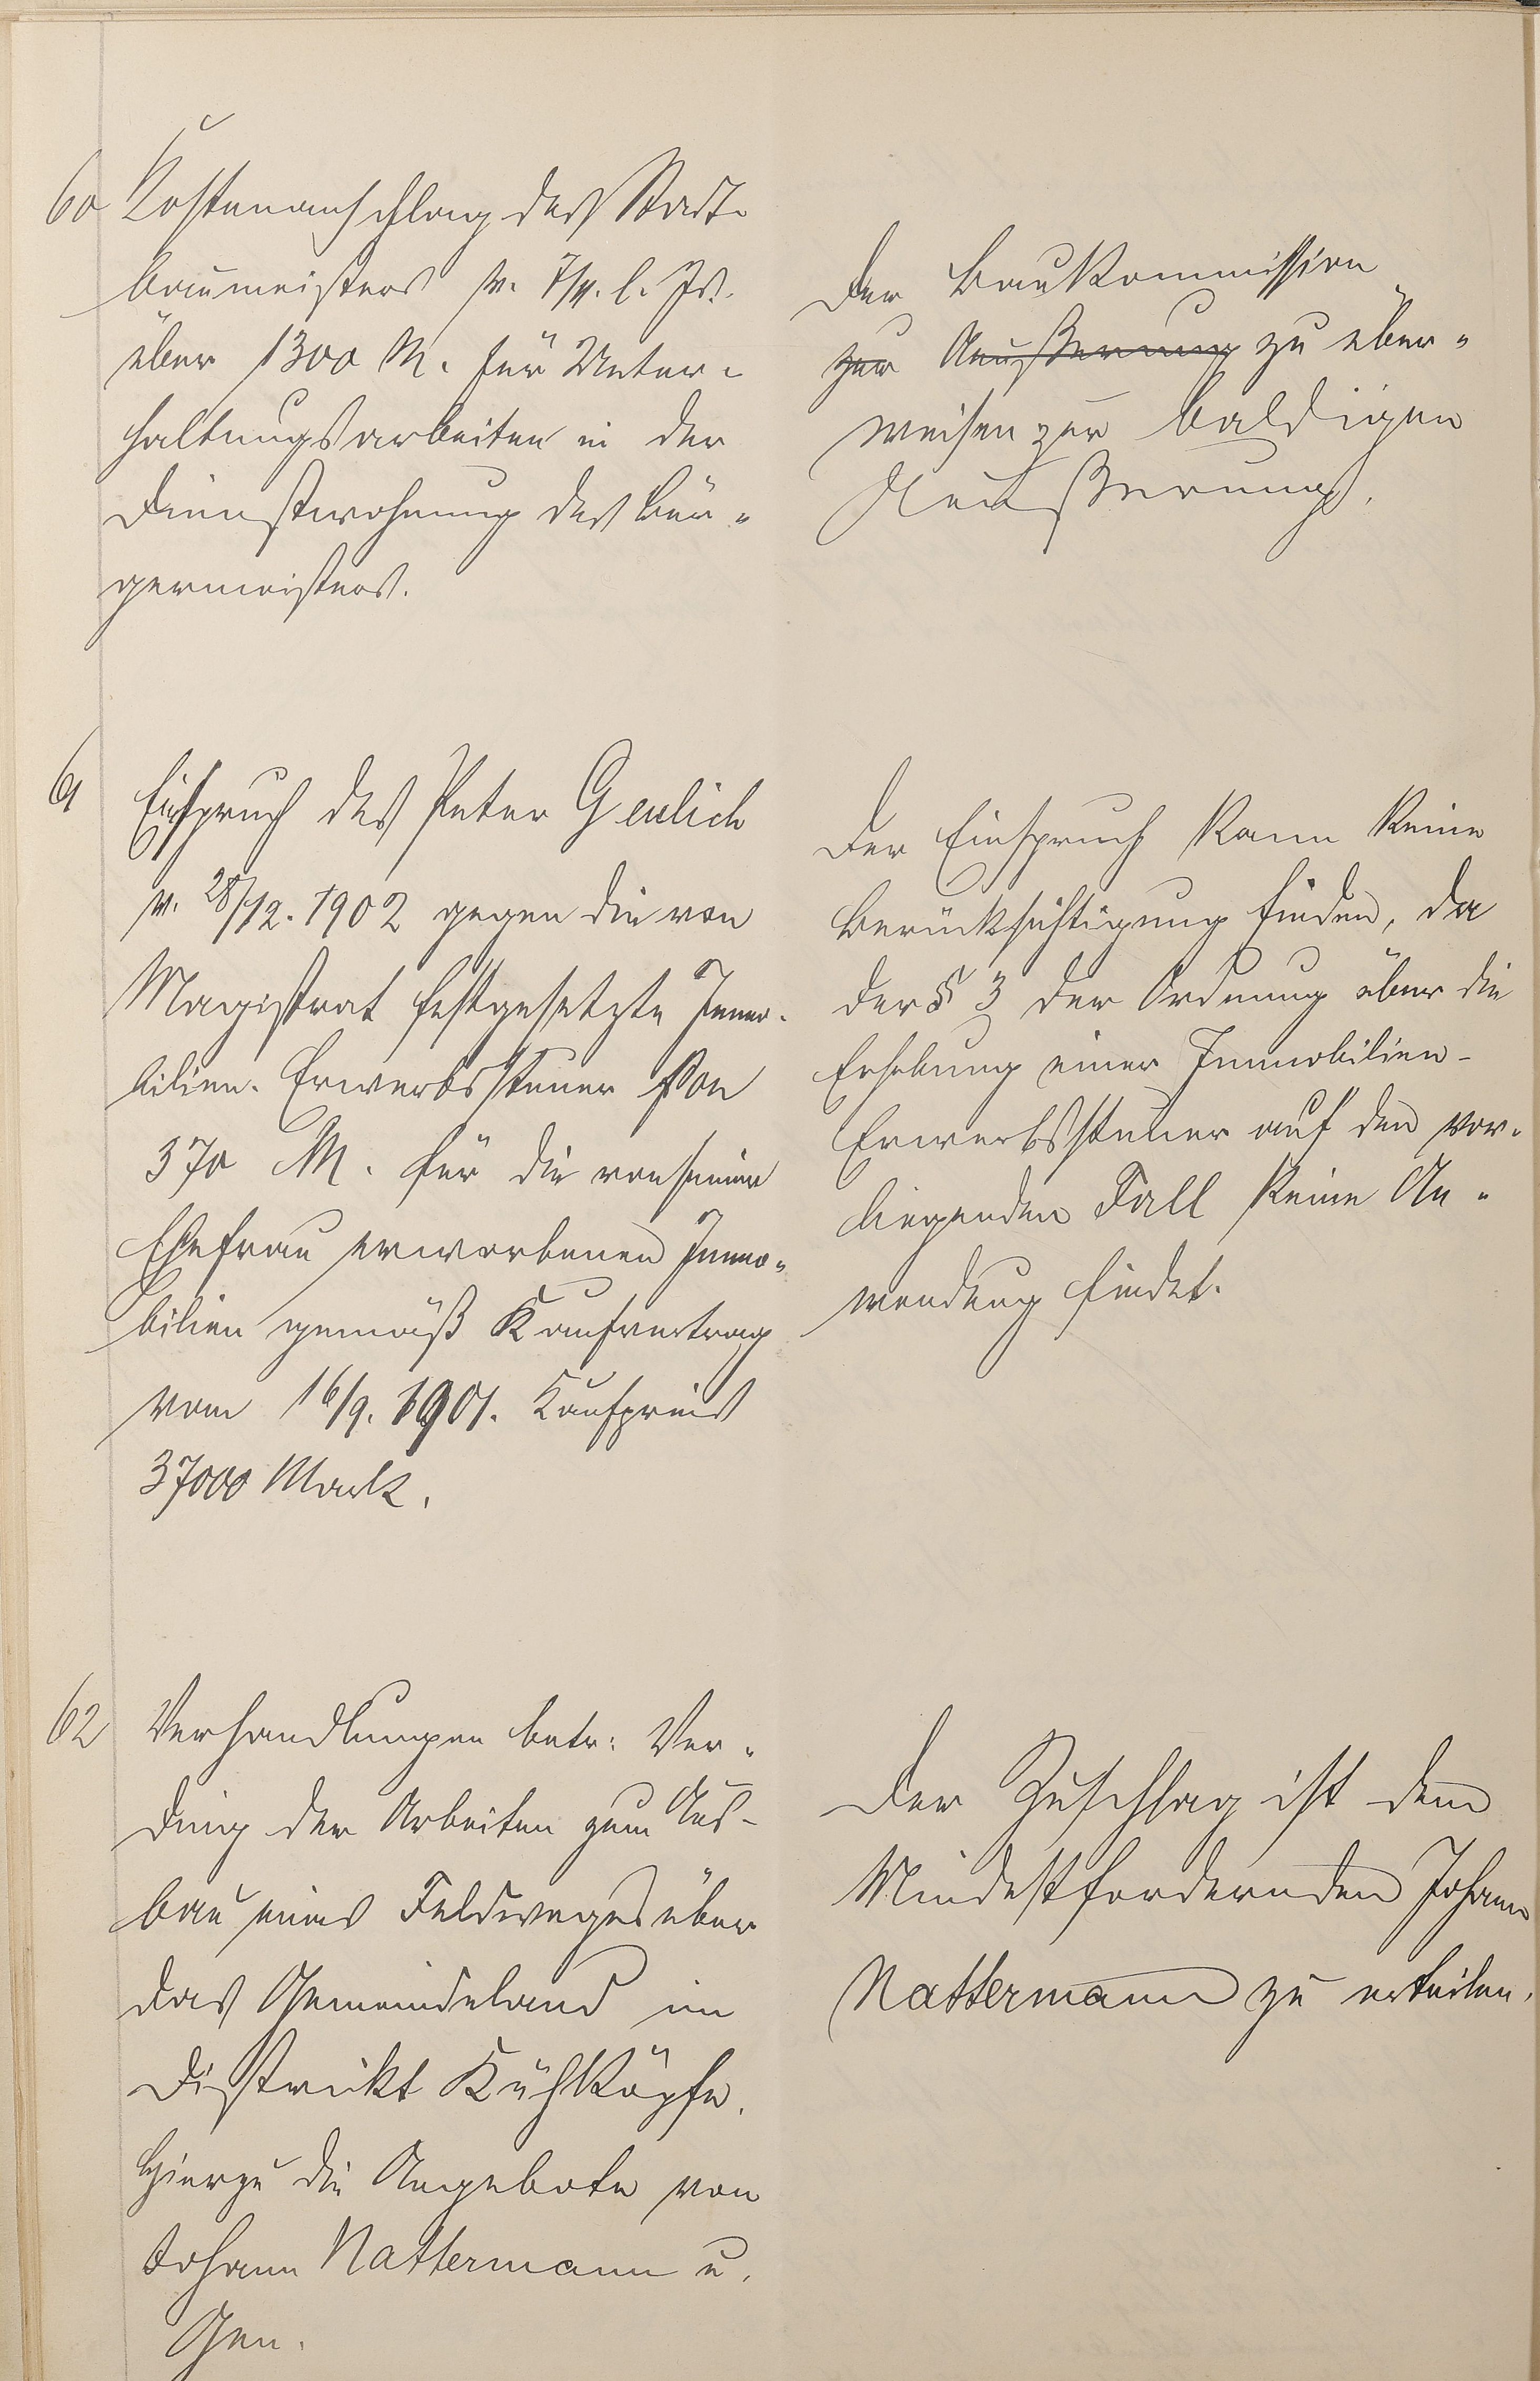 60 Kostenanschlag des Stadt-
baumeisters v. 7/4. l. Js.
über 1300 M. für Unter-
haltungsarbeiten in der
Dienstwohnung des Bür-
germeisters.
Der Baukommission
zur Aeußerung zu über-
weisen zur baldigen
Aeußerung.
61 Einspruch des Peter Gerlich
v. 28/12. 1902 gegen die von
Magistrat festgesetzte Immo-
bilien-Erwerbssteuer von
370 M. für die von seiner
Ehefrau erworbenen Immo-
bilien gemäß Kaufvertrag
vom 16/9. 1901. Kaufpreis
37000 Mark.
Der Einspruch kann keine
Berücksichtigung finden, da
der § 3 der Ordnung über die
Erhebung einer Immobilien-
Erwerbssteuer auf den vor-
liegenden Fall keine An-
wendung findet.
62 Verhandlungen betr: Ver-
ding der Arbeiten zum Aus-
bau eines Feldweges über
das Gemeindeland im
Distrikt Kühköpfe.
Hierzu die Angebote von
Johann Nattermann u.
Gen.
Der Zuschlag ist dem
Mindestfordernden Johann
Nattermann zu erteilen.